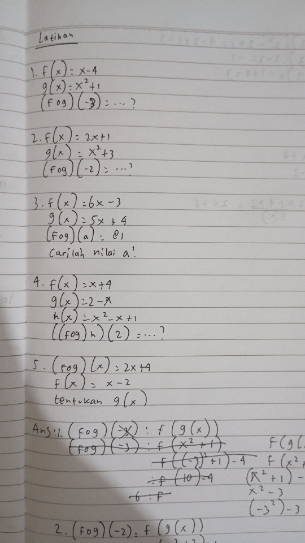 Latihan
1. f(x) = x-4
g(x) = x²+1
(fog)(-3) = ...?
2. f(x) = 2x+1
g(x) = x²+3
(fog)(-2) = ...?
3. f(x) = 6x-3
g(x) = 5x+4
(fog)(a) = 81
carilah nilai a!
4. f(x) = x+4
g(x) = 2-x
h(x) = x²-x+1
((fog)h)(2) = ...?
5. (fog)(x) = 2x+4
f(x) = x-2
tentukan g(x)
Ans: 1. (fog)(-x) : f(g(x))
(fog)(-3) : f(x²+1)
f((-3)²+1)-4
: f(10)-4
6 : f
f(g(
f(x²+
(x²+1)-
x²-3
(-3²)-3
2. (fog)(-2) = f(g(x))